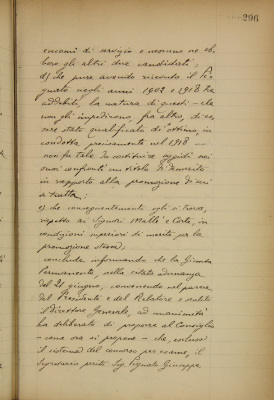 296
encomi di servizio e nessuno ne eb-
bero gli altri due candidati;
d) che pure avendo riscosso il Pi-
gnato negli anni 1902 e 1918 ha
addebiti, la natura di questi - che
non gli impedirono, fra altro, di es-
sere stato qualificato di ottimo in
condotta precisamente nel 1918 -
non fa tale da costituire oggidì nei
suoi confronti un titolo di demerito
in rapporto alla promozione di cui
si tratta;
e) che conseguentemente egli si trova,
rispetto ai Signori Mallè e Corte, in
condizioni superiori di merito per la
promozione stessa;
conclude informando che la Giunta
Permanente, nella citata adunanza
del 21 giugno, convenendo nel parere
del Presidente e del Relatore e sentito
il Direttore Generale, ad unanimità
ha deliberato di proporre al Consiglio
- come ora si propone - che, escluso
il sistema del concorso per esame, il
Segretario perito Sig. Pignato Giuseppe